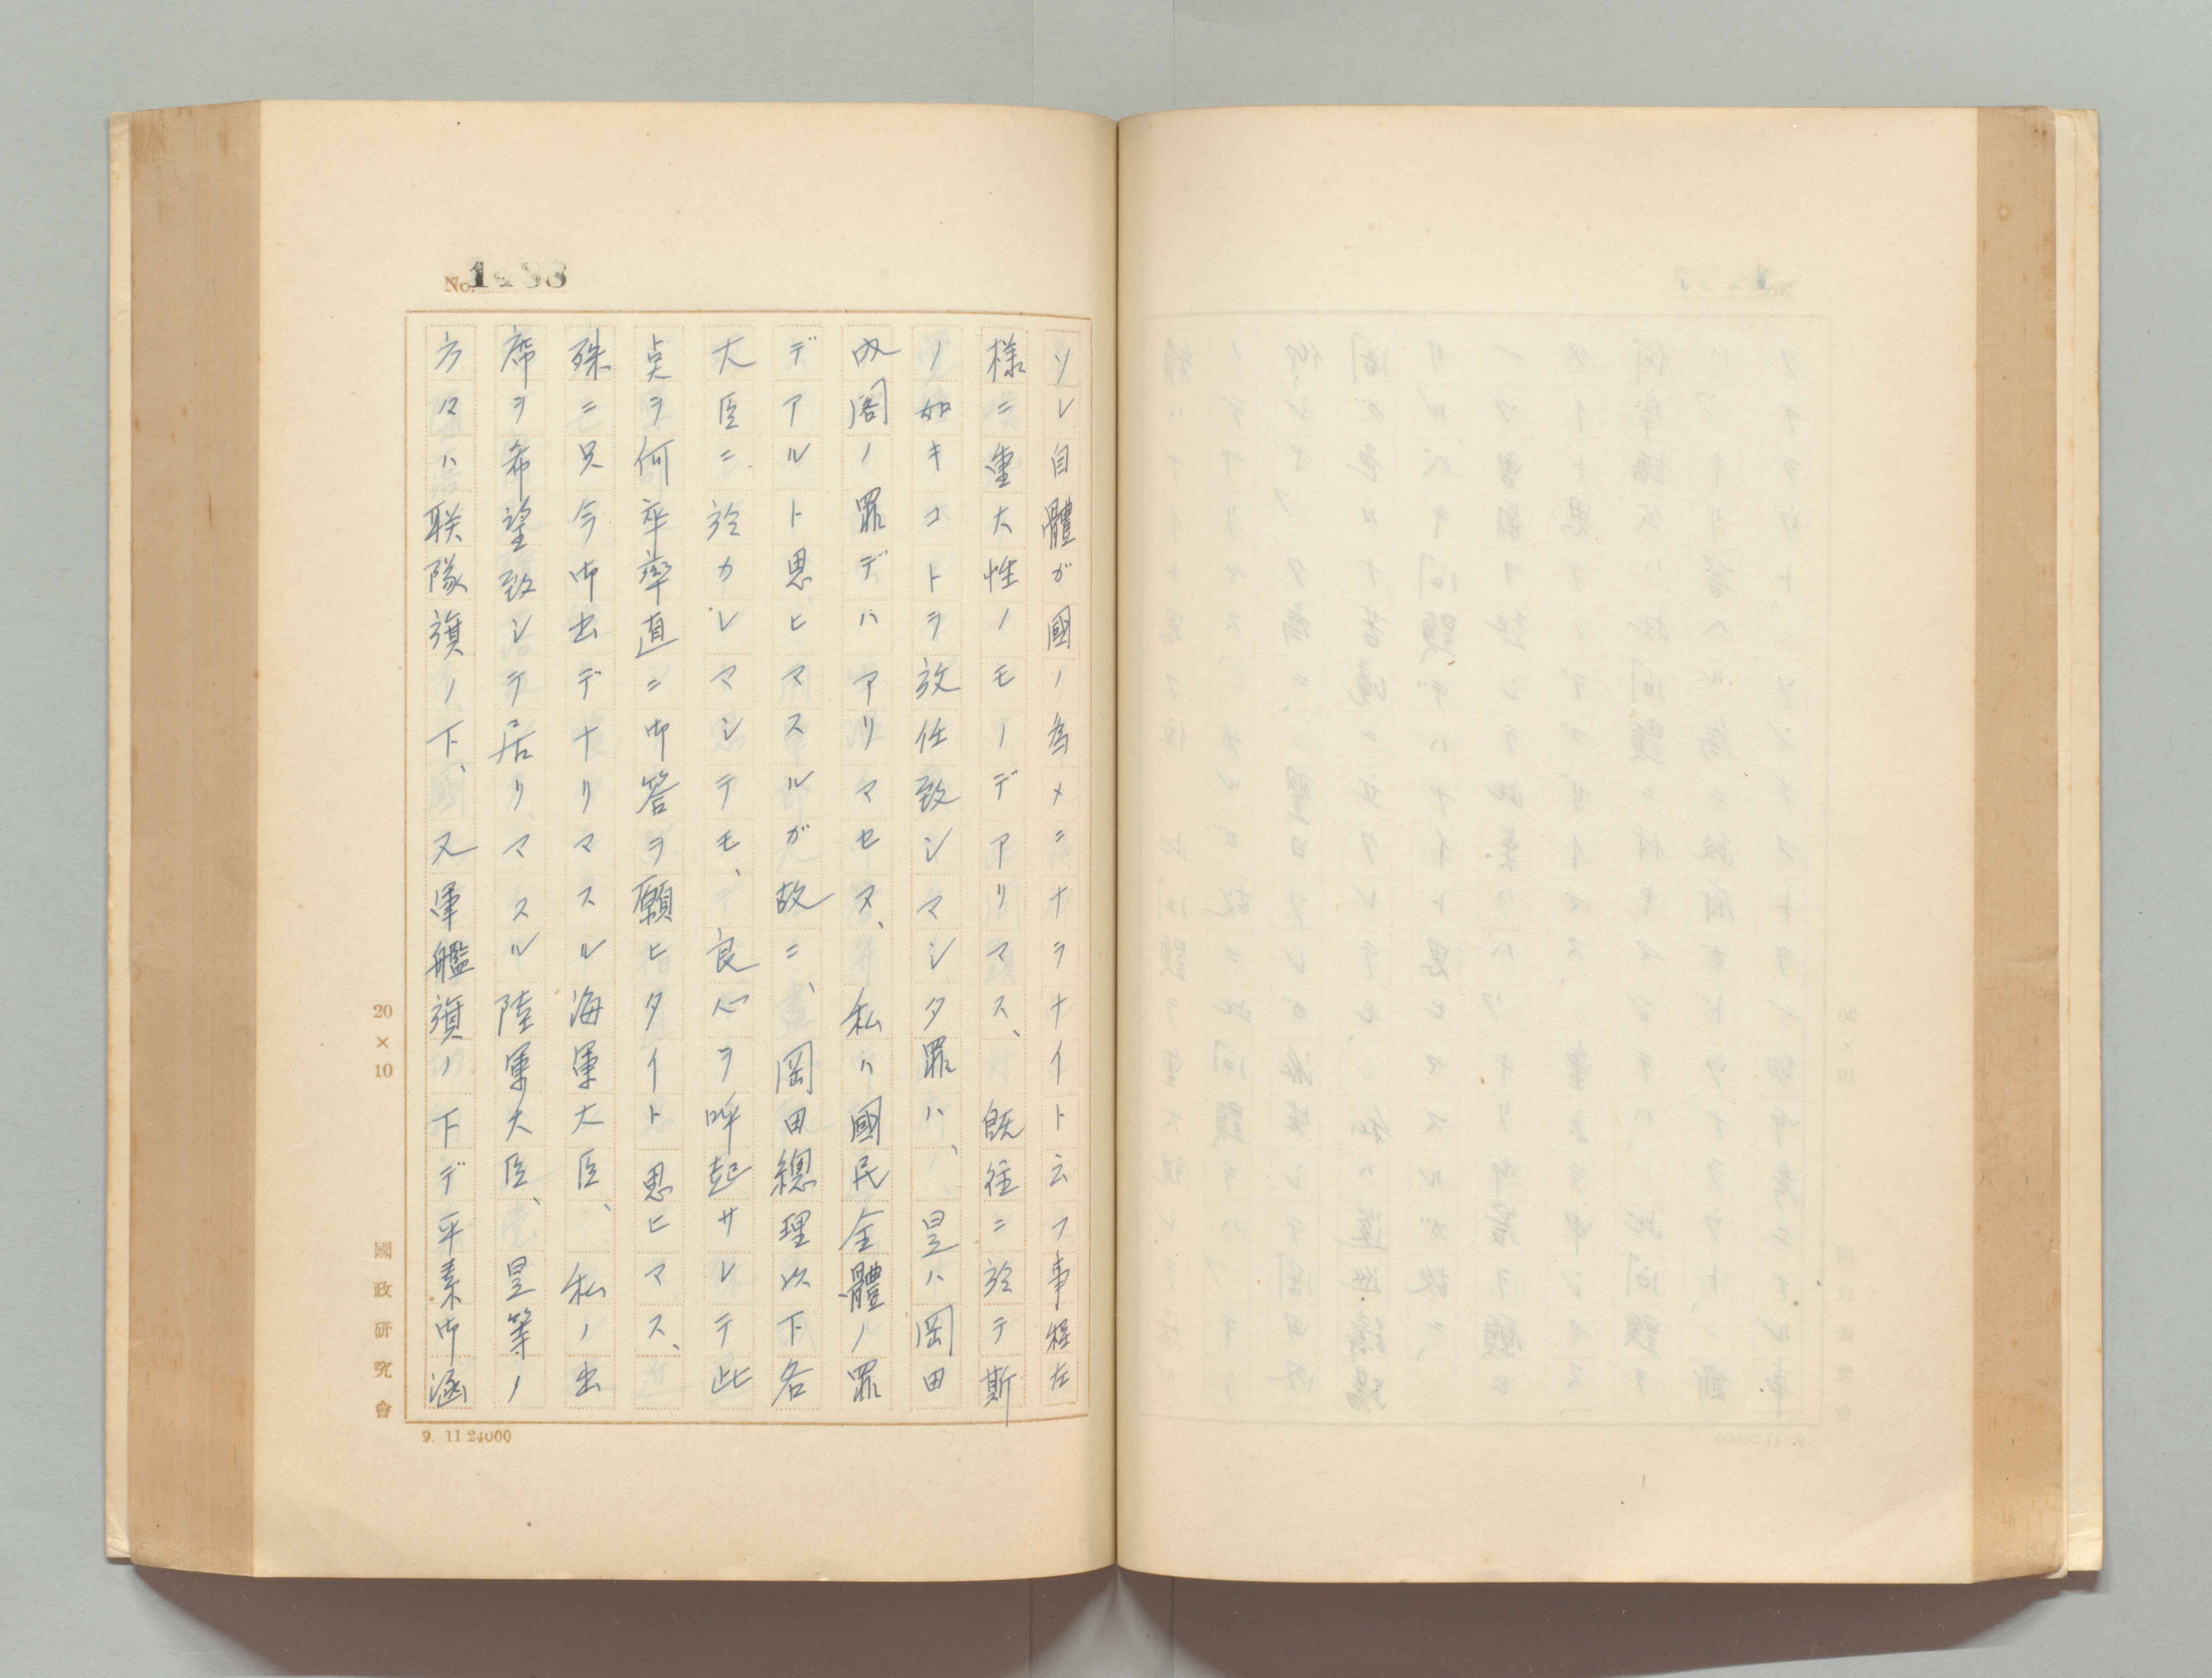 No. 1488
ソレ自體ガ國ノ為メニナラナイト云フ事程左
様ニ重大性ノモノデアリマス、既往ニ於テ斯
ノ如キコトヲ放任致シマシタ罪ハ、是ハ岡田
内閣ノ罪デハアリマセヌ、私ハ國民全體ノ罪
デアルト思ヒマスルガ故ニ、岡田總理以下各
大臣ニ於カレマシテモ、良心ヲ呼起サレテ此
点ヲ何卒率直ニ御答ヲ願ヒタイト思ヒマス、
殊ニ只今御出デナリマスル海軍大臣、私ノ出
席ヲ希望致シテ居リマスル陸軍大臣、是等ノ
方々ハ联隊旗ノ下、又軍艦旗ノ下デ平素御涵
20×10
國政研究會
9. 11 24000